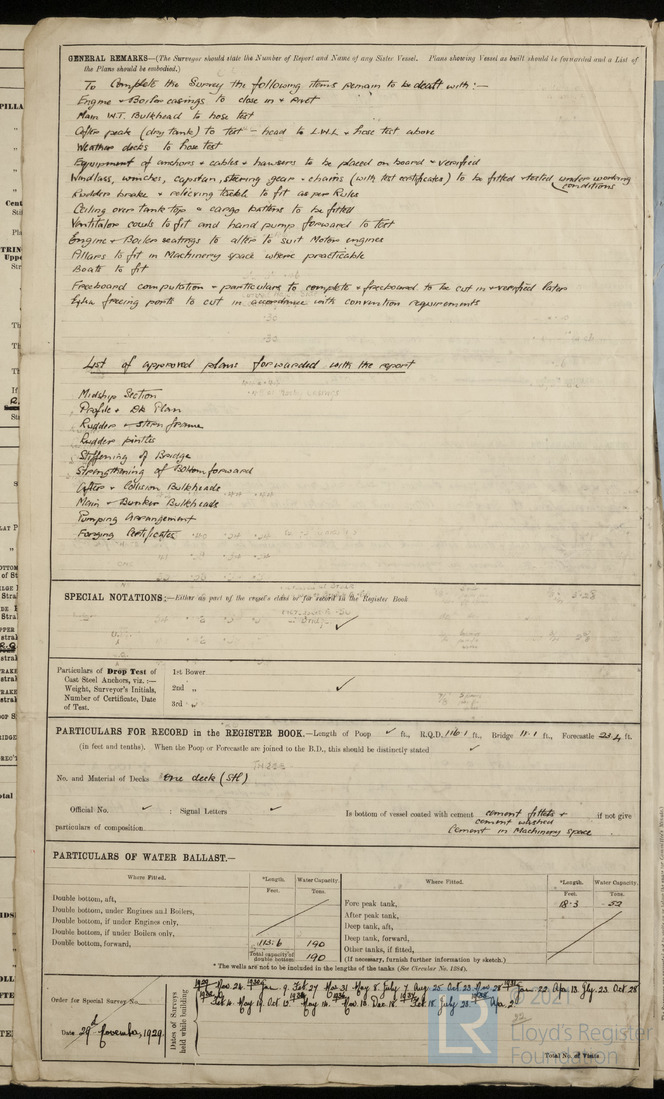 GENERAL REMARKS—(The Surveyor should state the Number of Report and Name of any Sister Vessel. Plans showing Vessel as built should be forwarded and a List of
the Plans should be embodied.)
To Complete the Survey the following items remain to be dealt with :—
Engine & Boiler casings to close in & rivet
Main W.T. Bulkhead to hose test
After peak (dry tank) to test – head to L.W.L & hose test above
Weather decks to hose test
Equipment of anchors & cables & hawsers to be placed on board & verified
Windlass, winches, capstan, steering gear & chains (with test certificates) to be fitted & tested under working
conditions
Rudder brake & relieving tackle to fit as per Rules
Ceiling over tank top & cargo battens to be fitted
Ventilator cowls to fit and hand pump forward to test
Engine & Boiler seatings to alter to suit Motor engines
Pillars to fit in Machinery space where practicable
Boats to fit
Freeboard computation & particulars to complete & freeboard to be cut in & verified later
Extra freeing ports to cut in accordance with convention requirements
List of approved plans forwarded with the report
Midship Section
Profile & Dk Plan
Rudder & Stern frame
Rudder pintles
Stiffening of Bridge
Strengthening of Bottom forward
After & Collision Bulkheads
Main & Bunker Bulkheads
Pumping Arrangement
Forging Certificates
SPECIAL NOTATIONS:—Either as part of the vessel's class or for record in the Register Book
Particulars of Drop Test of
Cast Steel Anchors, viz. :—
Weight, Surveyor's Initials,
Number of Certificate, Date
of Test.
1st Bower
2nd „
3rd „
PARTICULARS FOR RECORD in the REGISTER BOOK.—Length of Poop ✓ ft., R.Q.D. 116.1 ft., Bridge 11.1 ft., Forecastle 23.4 ft.
(in feet and tenths). When the Poop or Forecastle are joined to the B.D., this should be distinctly stated ✓
No. and Material of Decks One deck (Stl)
Official No. ✓ : Signal Letters ✓ Is bottom of vessel coated with cement cement fillets & if not give
cement washed
particulars of composition Cement in Machinery space
PARTICULARS OF WATER BALLAST.—
Where Fitted. *Length. Water Capacity. Where Fitted. *Length. Water Capacity.
Feet. Tons. Feet. Tons.
Double bottom, aft, Fore peak tank, 18.3 52
Double bottom, under Engines and Boilers, After peak tank,
Double bottom, if under Engines only, Deep tank, aft,
Double bottom, if under Boilers only, Deep tank, forward,
Double bottom, forward, 113.6 190 Other tanks, if fitted,
Total capacity of double bottom 190 (If necessary, furnish further information by sketch.)
* The wells are not to be included in the lengths of the tanks (See Circular No. 1284).
Order for Special Survey No.
Date 29th November, 1929.
Dates of Surveys
held while building
Nov. 26 Jan. 9. Feb 27 Mar 31 May 8 July 7 Aug 25 Oct 23 Nov 28 Jan. 22 Apr. 13 July. 23. Oct 28
May 19. Oct 12
Total No. of Visits
© 2021
LR
Lloyd's Register
Foundation